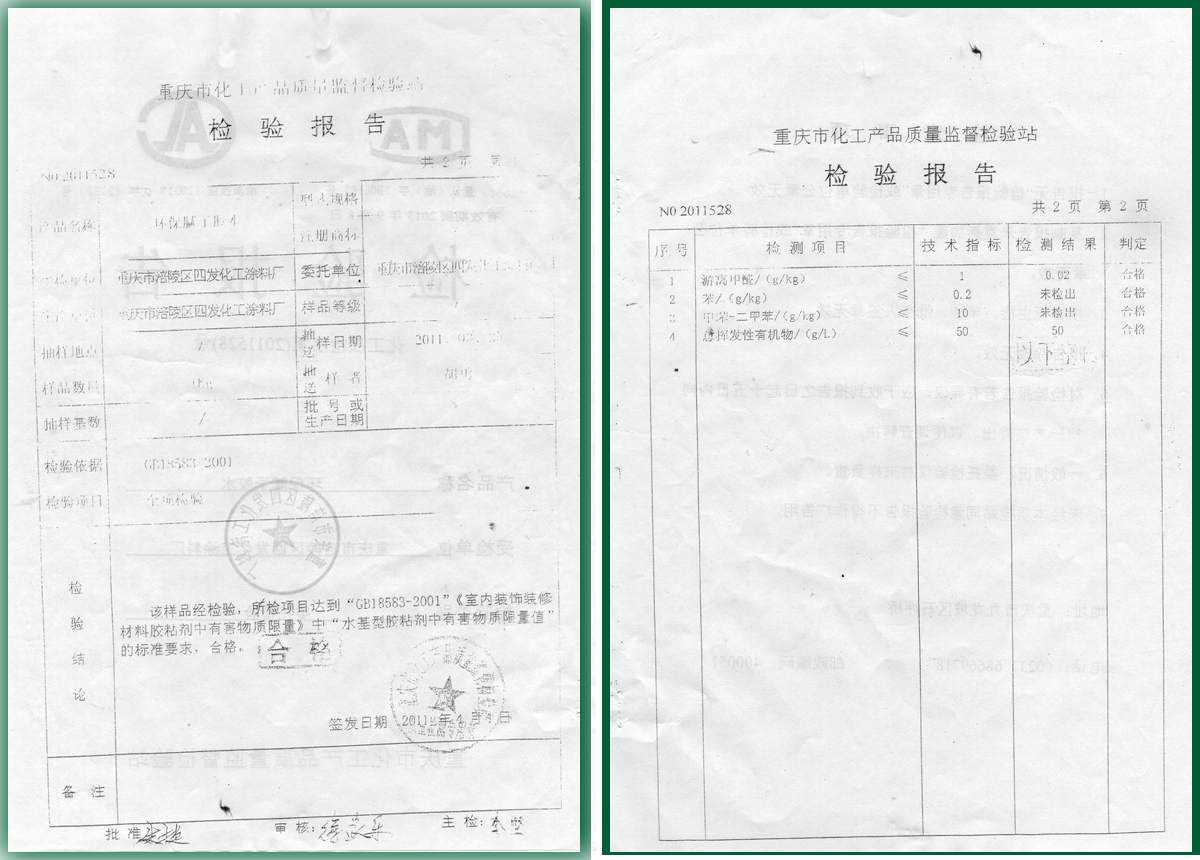 重庆市化工产品质量监督检验站
检 验 报 告
共 2 页 第
N0 2011528
产品名称 环保腻子胶水 型式规格
注册商标
重庆市涪陵区四发化工涂料厂 委托单位 重庆市涪陵区四发化工
重庆市涪陵区四发化工涂料厂 样品等级
抽样地点 / 抽送样日期 2011.03.
样品数量 1Kg 抽送样者
抽样基数 / 批号或生产日期
检验依据 GB18583-2001
检验项目 全项检验
检验结论
该样品经检验，所检项目达到“GB18583-2001”《室内装饰装修
材料胶粘剂中有害物质限量》中“水基型胶粘剂中有害物质限量值”
的标准要求，合格。
合 格
签发日期 2011年4月4日
备 注
批准 审核： 主检：
重庆市化工产品质量监督检验站
检 验 报 告
N0 2011528 共 2 页 第 2 页
序号 检测项目 技术指标 检测结果 判定
1 游离甲醛/（g/kg） ≤ 1 0.02 合格
2 苯/（g/kg） ≤ 0.2 未检出 合格
3 甲苯-二甲苯/（g/kg） ≤ 10 未检出 合格
4 总挥发性有机物/（g/L） ≤ 50 50 合格